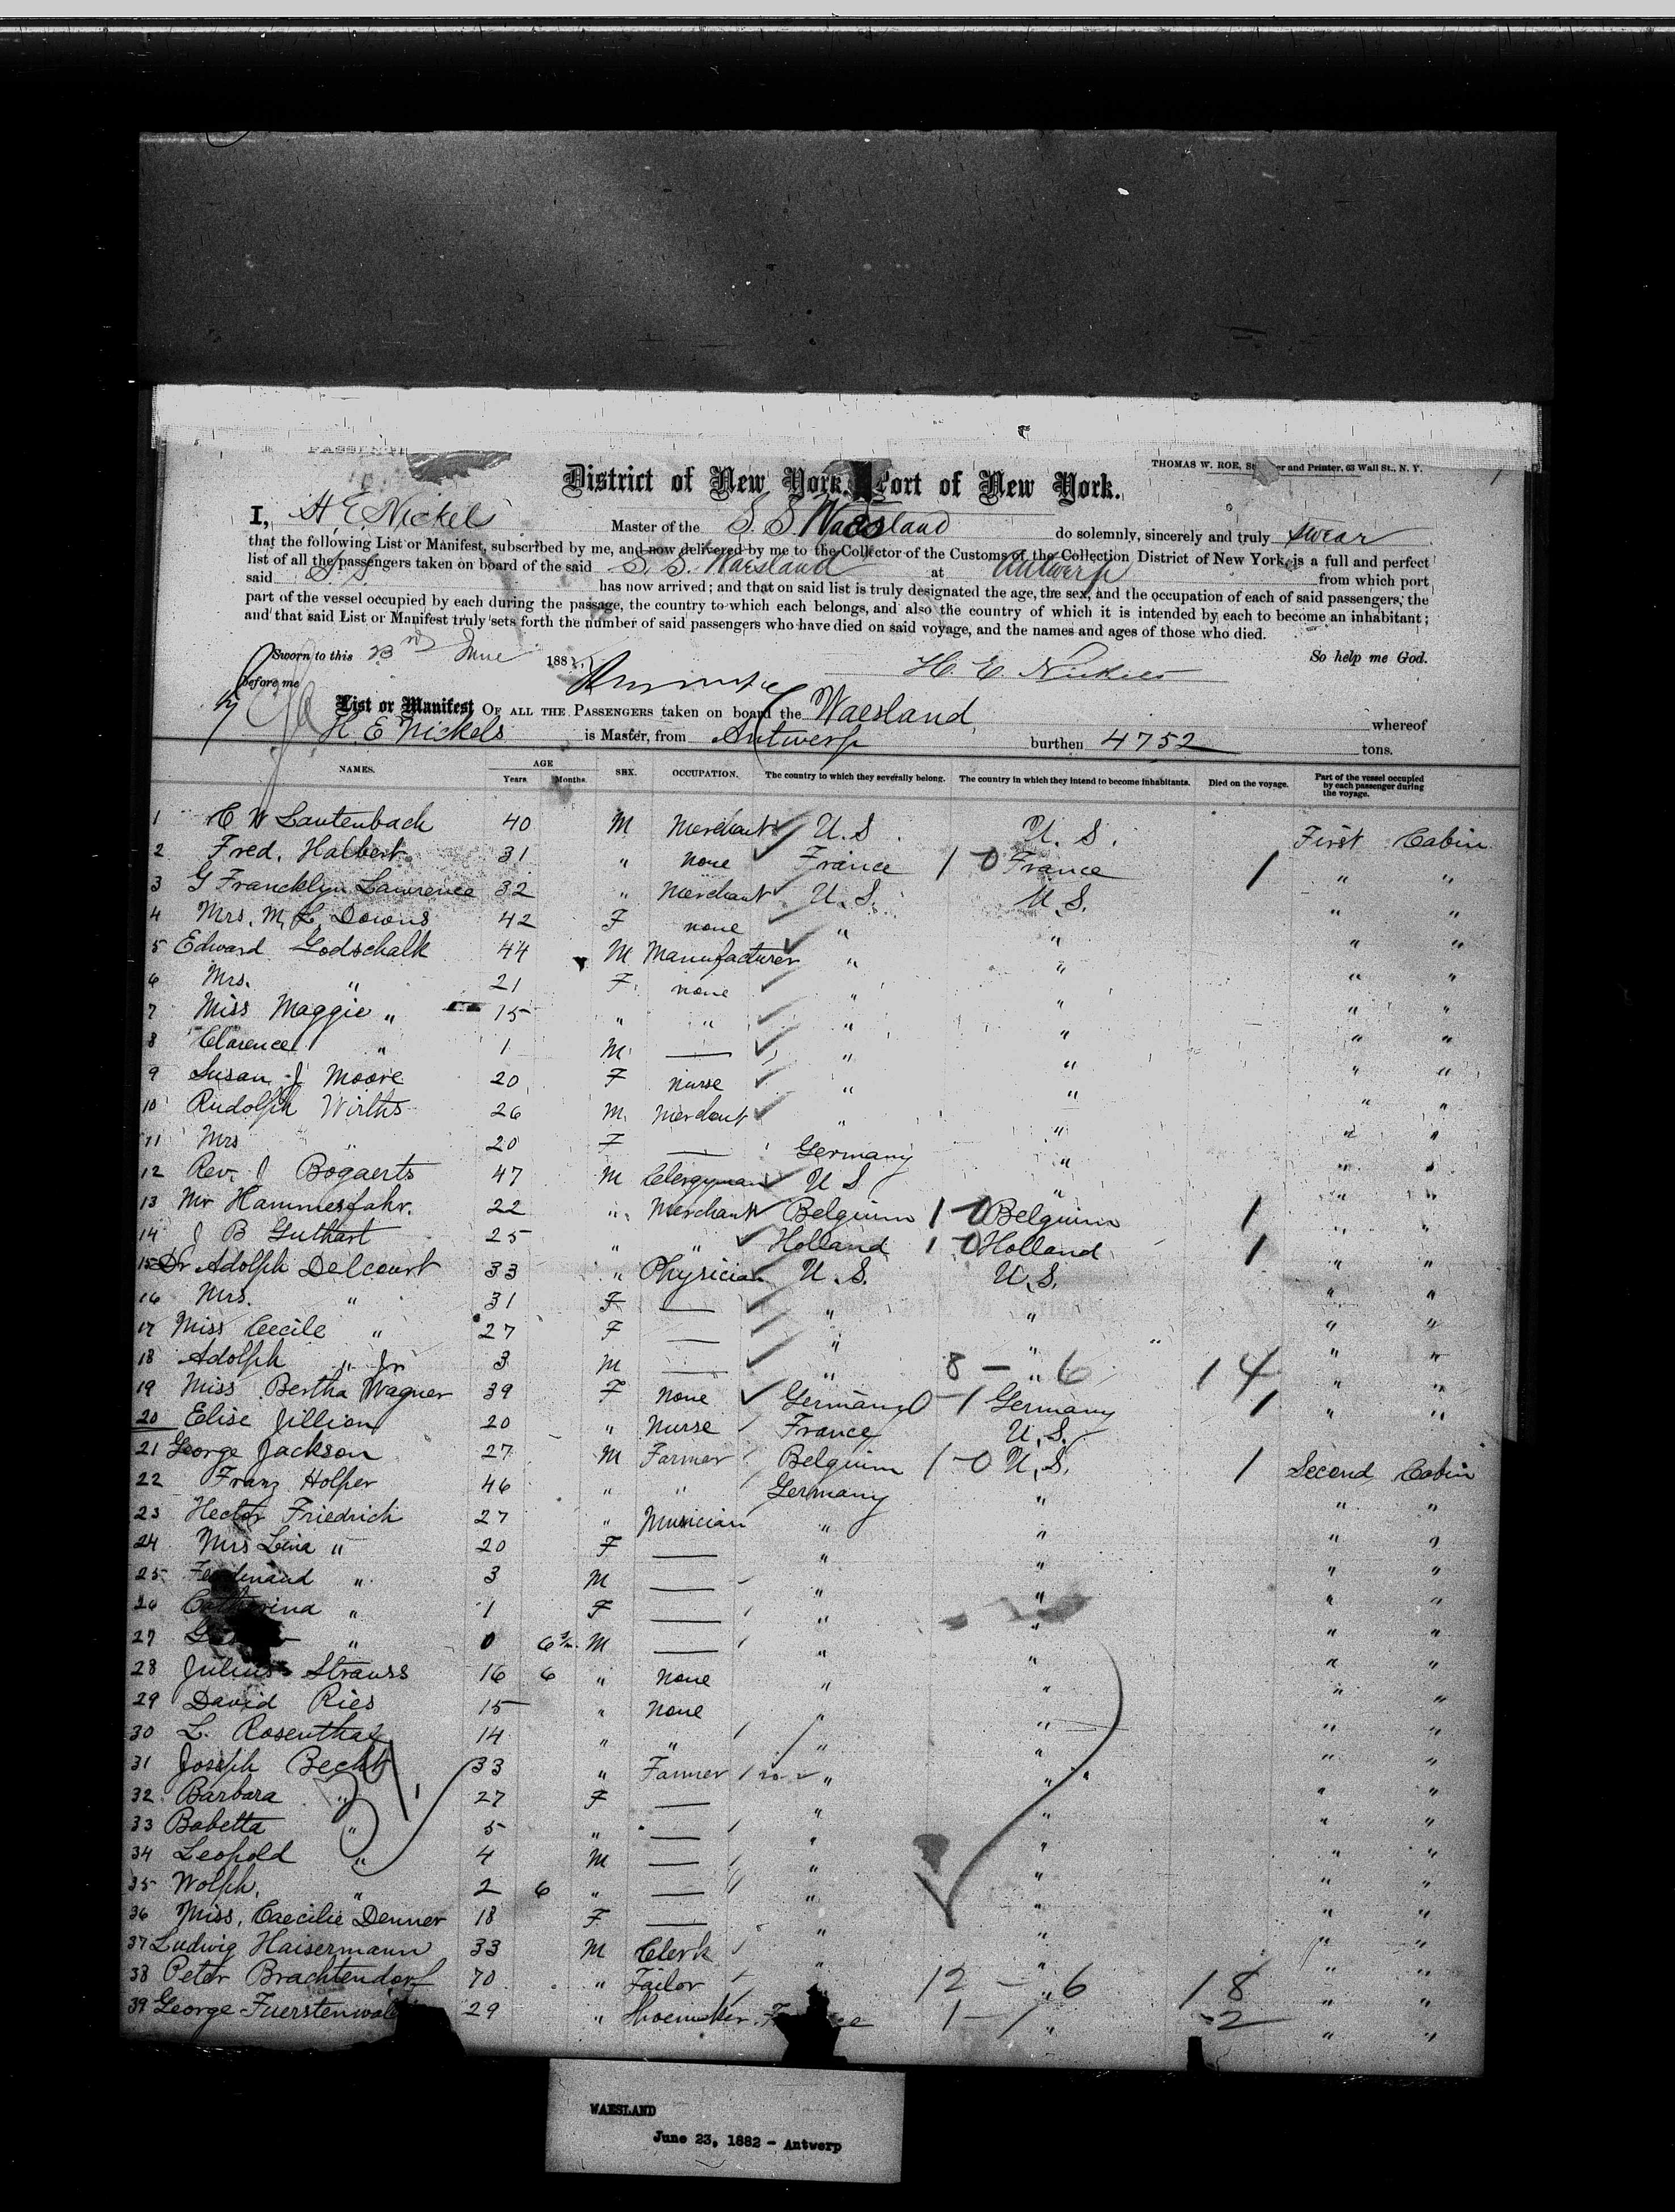 THOMAS W. ROE, St er and Printer, 63 Wall St., N. Y.
District of New York. Port of New York.
I, H E Nickels Master of the S. S. Waesland do solemnly, sincerely and truly swear
that the following List or Manifest, subscribed by me, and now delivered by me to the Collector of the Customs of the Collection District of New York, is a full and perfect
list of all the passengers taken on board of the said S. S. Waesland at Antwerp from which port
said S S has now arrived; and that on said list is truly designated the age, the sex, and the occupation of each of said passengers; the
part of the vessel occupied by each during the passage, the country to which each belongs, and also the country of which it is intended by each to become an inhabitant;
and that said List or Manifest truly sets forth the number of said passengers who have died on said voyage, and the names and ages of those who died.
Sworn to this 23rd June 188 H. E. Nickels So help me God.
before me
List or Manifest OF ALL THE PASSENGERS taken on board the Waesland whereof
H. E Nickels is Master, from Antwerp burthen 4752 tons.
NAMES. AGE Years. Months. SEX. OCCUPATION. The country to which they severally belong. The country in which they intend to become inhabitants. Died on the voyage. Part of the vessel occupied by each passenger during the voyage.
1 C W Lautenbach 40 M Merchant U.S. U.S. First Cabin
2 Fred. Halbert 31 " none France 1-0 France 1 " "
3 G Francklyn Lawrence 32 " Merchant U.S. U.S. " "
4 Mrs. M. L. Downs 42 F none " " " "
5 Edward Godschalk 44 M Manufacturer " " " "
6 Mrs. " 21 F. none " " " "
7 Miss Maggie " 15 " " " " " "
8 Clarence " 1 M. — " " " "
9 Susan J Moore 20 F nurse " " " "
10 Rudolph Wirths 26 M. Merchant " " " "
11 Mrs " 20 F — Germany " " "
12 Rev. J Bogaerts 47 M Clergyman U S " " "
13 Mr Hammesfahr. 22 " Merchant Belgium 1-0 Belgium 1 " "
14 J B Guthart 25 " " Holland 1-0 Holland 1 " "
15 Dr Adolph Delcourt 33 " Physician U.S. U.S. " "
16 Mrs. " 31 F — " " " "
17 Miss Cecile " 27 F — " " " "
18 Adolph " Jr 3 M — " 8 — " 6 14 " "
19 Miss Bertha Wagner 39 F none Germany 0-1 Germany 1 " "
20 Elise Jillion 20 " Nurse France U.S. " "
21 George Jackson 27 M Farmer Belgium 1-0 U.S. 1 Second Cabin
22 Franz Holper 46 " " Germany " " "
23 Hector Friedrich 27 " Musician " " " "
24 Mrs Lina " 20 F — " " " "
25 Ferdinand " 3 M — " " " "
26 Catharina " 1 F — " " " "
27 " 0 6 M — " " " "
28 Julius Strauss 16 6 " none " " " "
29 David Ries 15 " none " " " "
30 L. Rosenthal 14 " " " " " "
31 Joseph Becht 33 " Farmer " " " "
32 Barbara " 27 F — " " " "
33 Babetta " 5 " — " " " "
34 Leopold " 4 M — " " " "
35 Wolph. " 2 6 " — " " " "
36 Miss, Caecilie Denner 18 F — " " " "
37 Ludwig Haisermann 33 M Clerk " " " "
38 Peter Brachtendorf 70 " Tailor " 12 — " 6 18 " "
39 George 29 " Shoemaker 1-1 " 2 " "
WAESLAND
June 23, 1882 - Antwerp